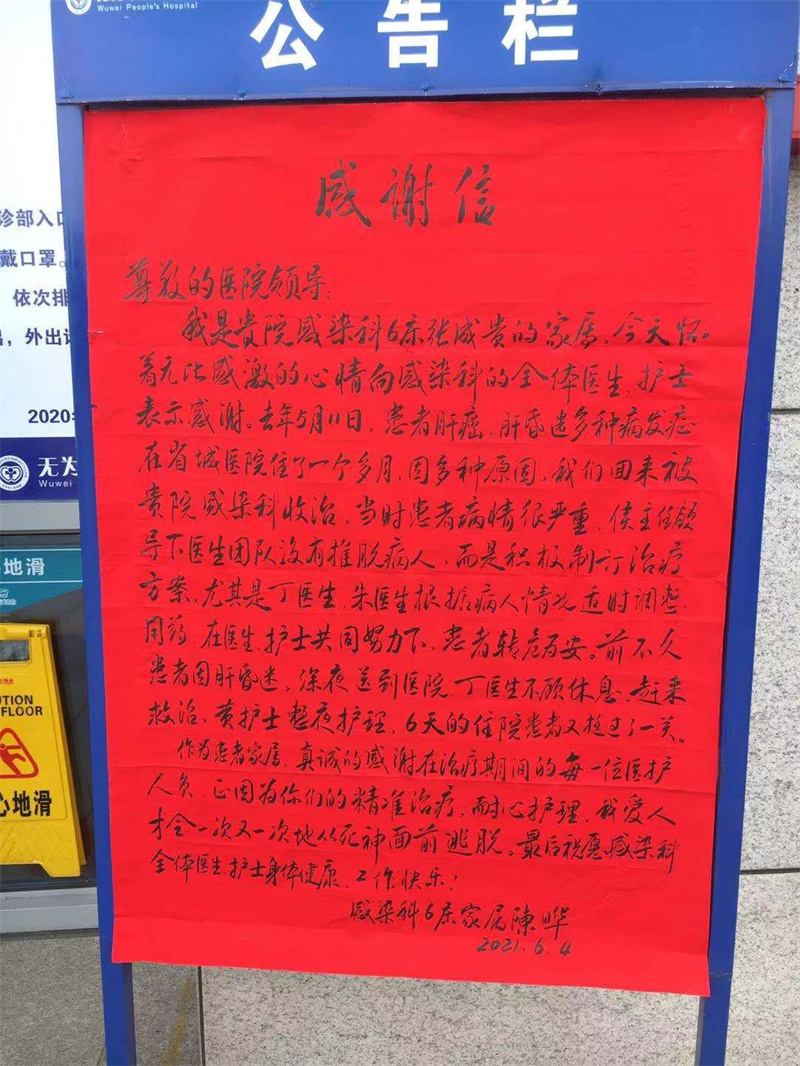 Wuwei People's Hospital
公告栏
诊部入口
戴口罩。
依次排
出，外出
2020年
无为
Wuwei
地滑
UTION
FLOOR
心地滑
感谢信
尊敬的医院领导：
我是贵院感染科6床张成贵的家属，今天怀
着无比感激的心情向感染科的全体医生、护士
表示感谢。去年5月11日，患者肝癌、肝昏迷多种病发症
在省城医院住了一个多月，因多种原因，我们回来被
贵院感染科收治，当时患者病情很严重，侯主任领
导下医生团队没有推脱病人，而是积极制订治疗
方案，尤其是丁医生、朱医生根据病人情况适时调整
用药，在医生、护士共同努力下，患者转危为安。前不久
患者因肝昏迷，深夜送到医院，丁医生不顾休息，赶来
救治、黄护士整夜护理，6天的住院患者又挺过了一关。
作为患者家属，真诚的感谢在治疗期间的每一位医护
人员，正因为你们的精准治疗，耐心护理，我爱人
才会一次又一次地从死神面前逃脱。最后祝愿感染科
全体医生、护士身体健康，工作快乐！
感染科6床家属陳晔
2021.6.4